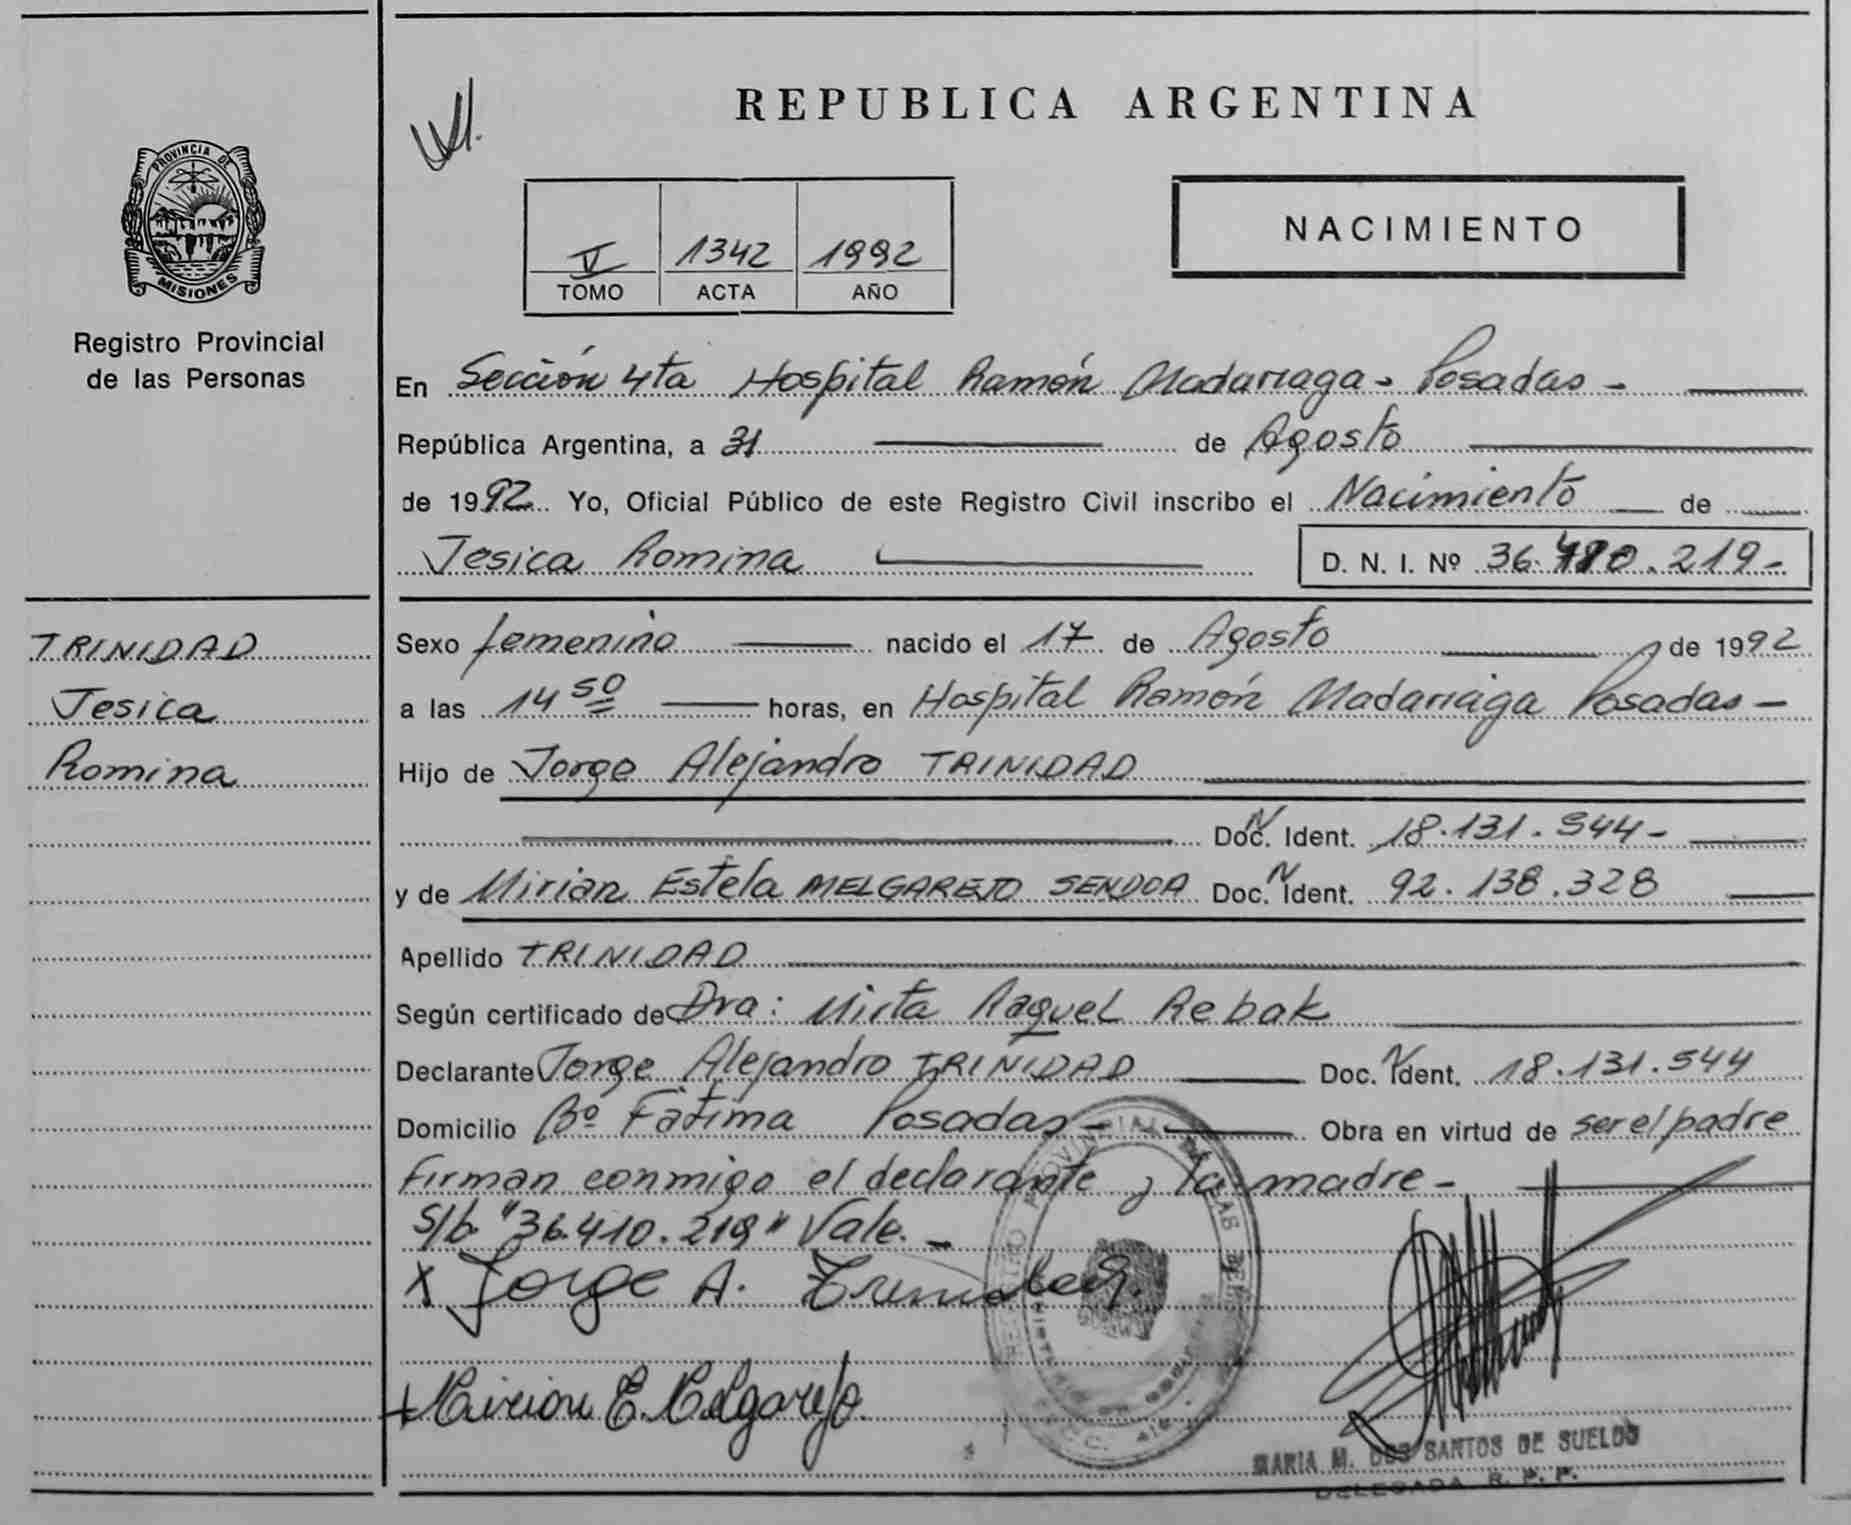 PROVINCIA DE
MISIONES
Registro Provincial
de las Personas
TRINIDAD
Jesica
Romina
REPUBLICA ARGENTINA
V 1342 1992
TOMO ACTA AÑO
NACIMIENTO
En Sección 4ta Hospital Ramón Madariaga - Posadas -
República Argentina, a 31 de Agosto
de 1992 Yo, Oficial Público de este Registro Civil inscribo el Nacimiento de
Jesica Romina D. N. I. Nº 36.410.219-
Sexo femenino nacido el 17 de Agosto de 1992
a las 14 50 horas, en Hospital Ramón Madariaga Posadas -
Hijo de Jorge Alejandro TRINIDAD
Doc. N Ident. 18.131.544-
y de Mirian Estela MELGAREJO SENDOA Doc. N Ident. 92.138.328
Apellido TRINIDAD
Según certificado de Dra: Mirta Raquel Rebak
Declarante Jorge Alejandro TRINIDAD Doc. N Ident. 18.131.544
Domicilio Bº Fátima Posadas - Obra en virtud de ser el padre
Firman conmigo el declarante y la madre -
S/b "36.410.219" Vale. -
x Jorge A. Trinidad.
+ Mirian E. Melgarejo.
MARIA M. DOS SANTOS DE SUELDO
DELEGADA R. P. P.